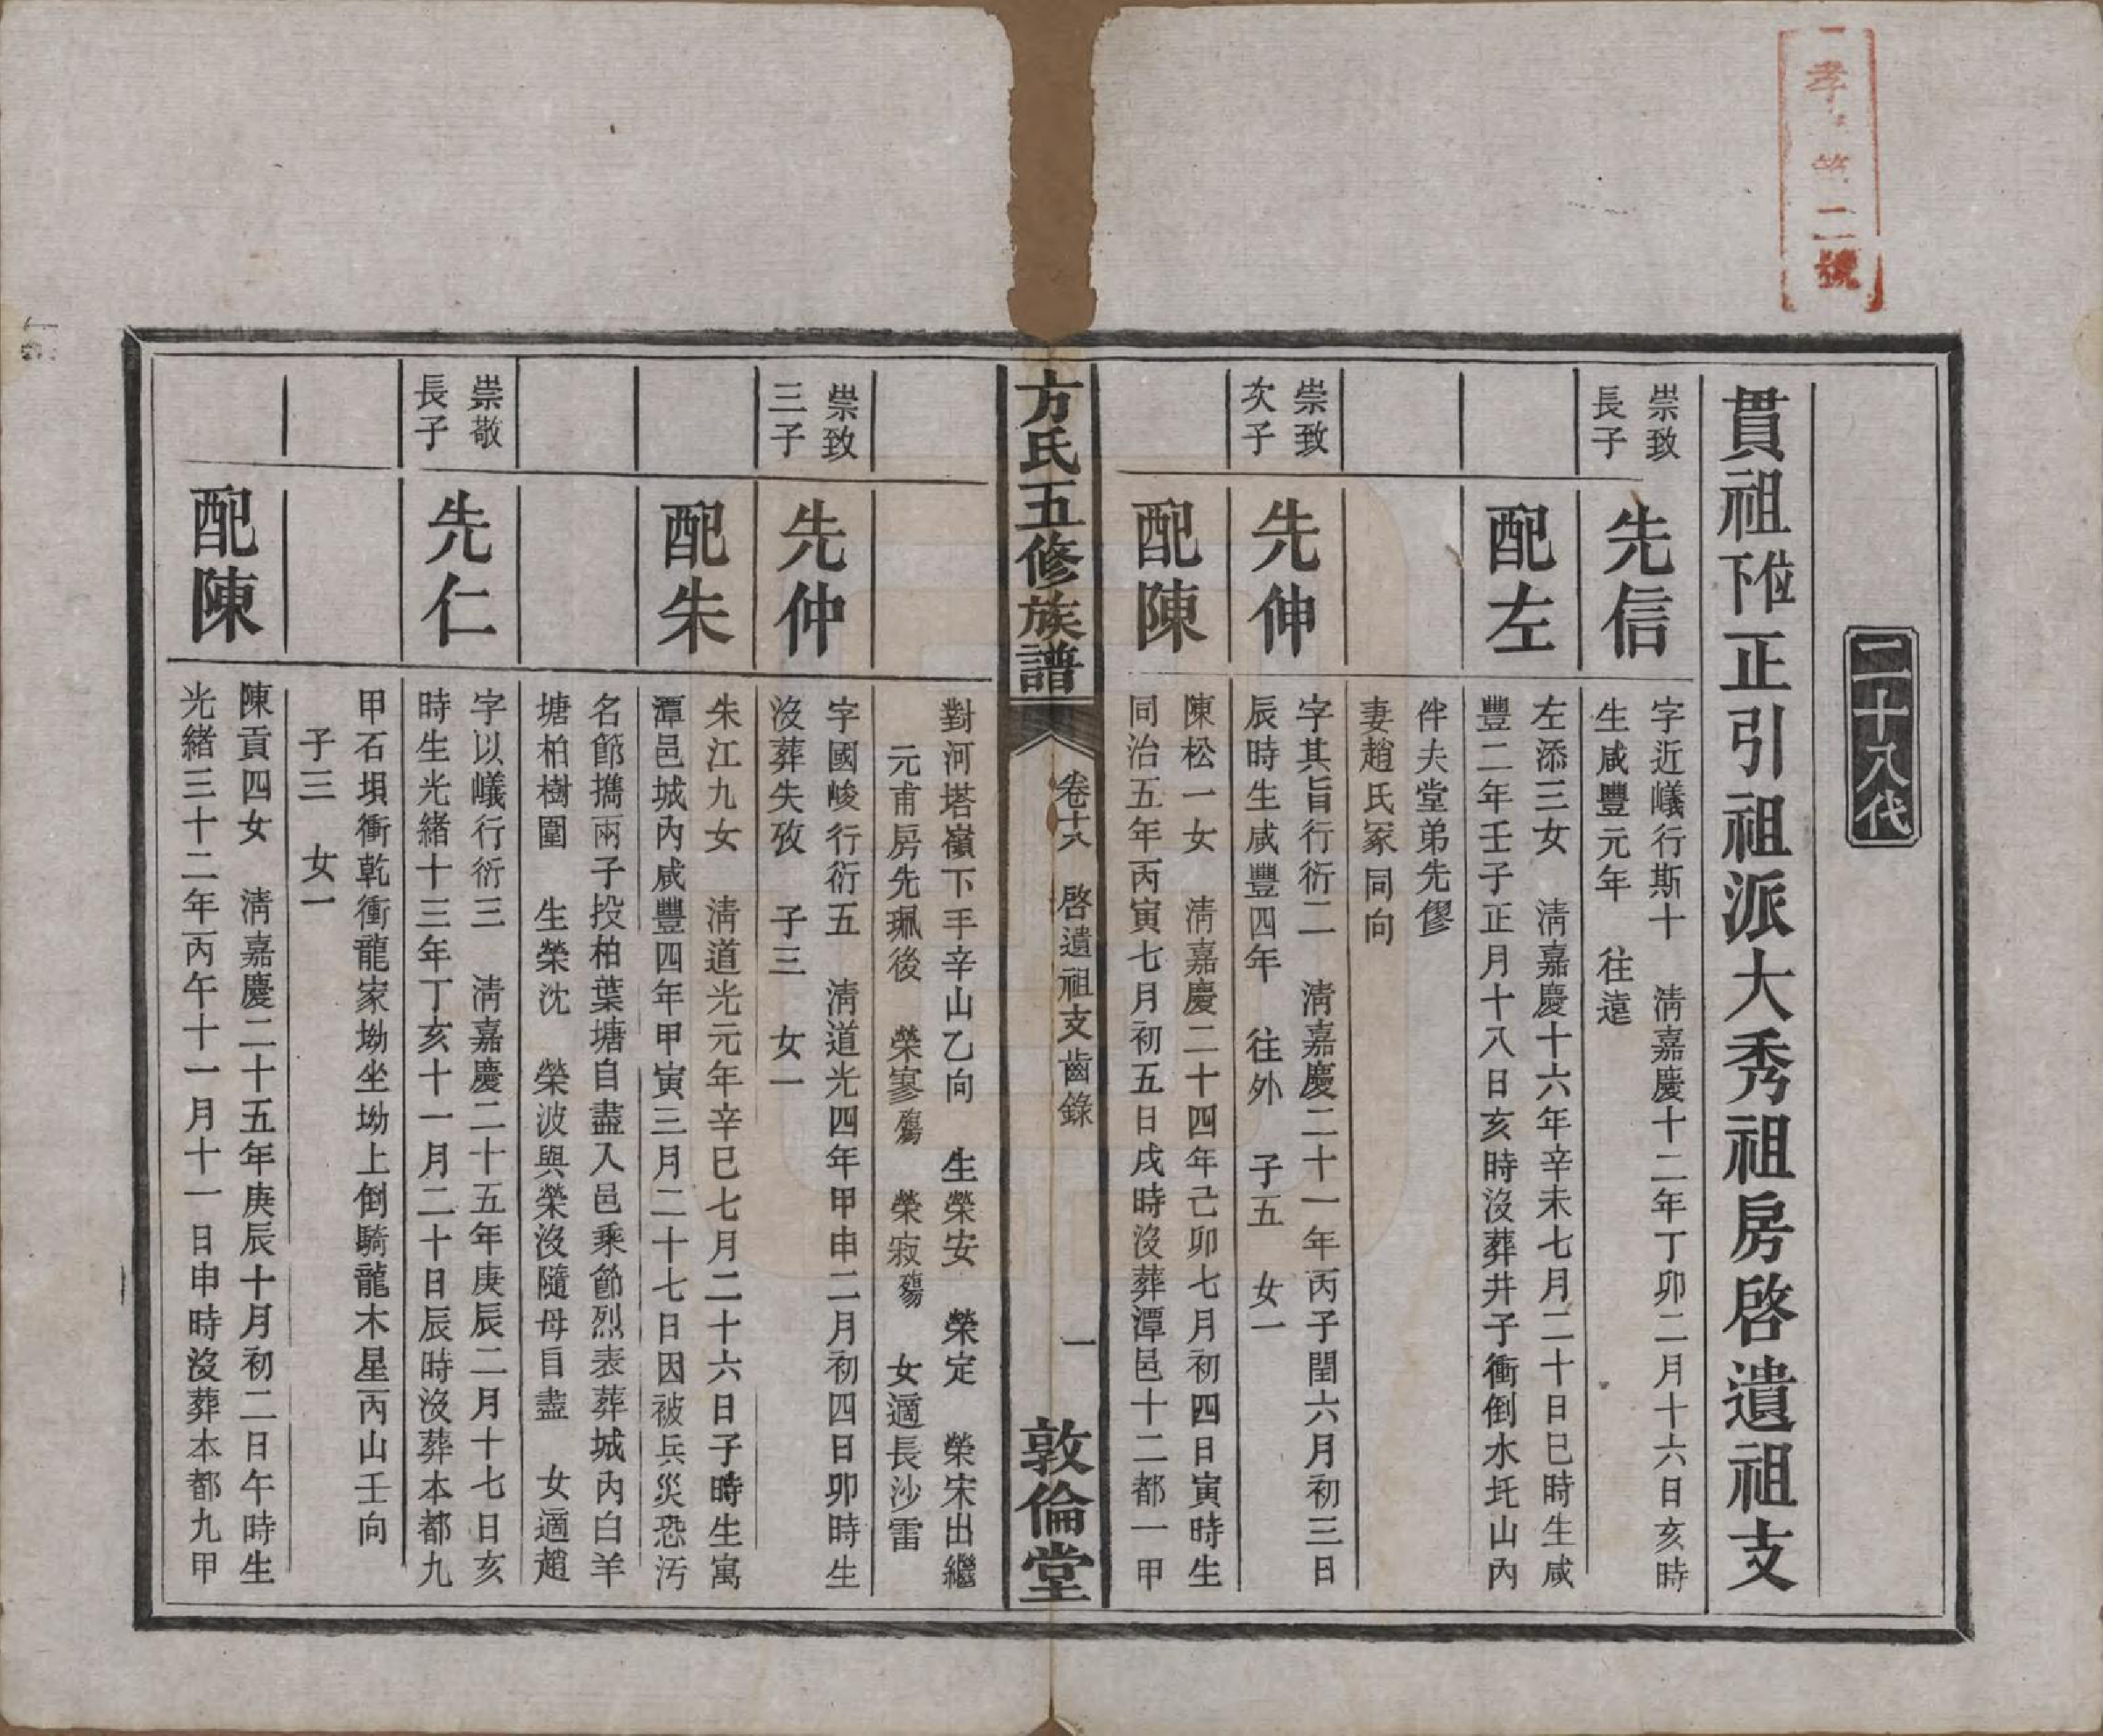 二十八代
貫祖位下正引祖派大秀祖房啓遺祖支
崇致
長子
先信
字近嶬行斯十　清嘉慶十二年丁卯二月十六日亥時
生咸豐元年　往遠
配左
左添三女　清嘉慶十六年辛未七月二十日巳時生咸
豐二年壬子正月十八日亥時沒葬井子衝倒水圫山內
伴夫堂弟先僇
妻趙氏冢同向
崇致
次子
先伸
字其旨行衍二　清嘉慶二十一年丙子閏六月初三日
辰時生咸豐四年　往外　子五　女一
配陳
陳松一女　清嘉慶二十四年己卯七月初四日寅時生
同治五年丙寅七月初五日戌時沒葬潭邑十二都一甲
方氏五修族譜
卷十八　啓遺祖支齒錄
一
敦倫堂
對河塔嶺下手辛山乙向　生榮安　榮定　榮宋出繼
元甫房先珮後　榮寥殤　榮寂殤　女適長沙雷
崇致
三子
先仲
字國峻行衍五　清道光四年甲申二月初四日卯時生
沒葬失攷　子三　女一
配朱
朱江九女　清道光元年辛巳七月二十六日子時生寓
潭邑城內咸豐四年甲寅三月二十七日因被兵災恐汚
名節攜兩子投柏葉塘自盡入邑乘節烈表葬城內白羊
塘柏樹圍　生榮沈　榮波與榮沒隨母自盡　女適趙
崇敬
長子
先仁
字以嶬行衍三　清嘉慶二十五年庚辰二月十七日亥
時生光緒十三年丁亥十一月二十日辰時沒葬本都九
甲石垻衝乾衝龍家坳坐坳上倒騎龍木星丙山壬向
子三　女一
配陳
陳貢四女　清嘉慶二十五年庚辰十月初二日午時生
光緒三十二年丙午十一月十一日申時沒葬本都九甲
孝
二號